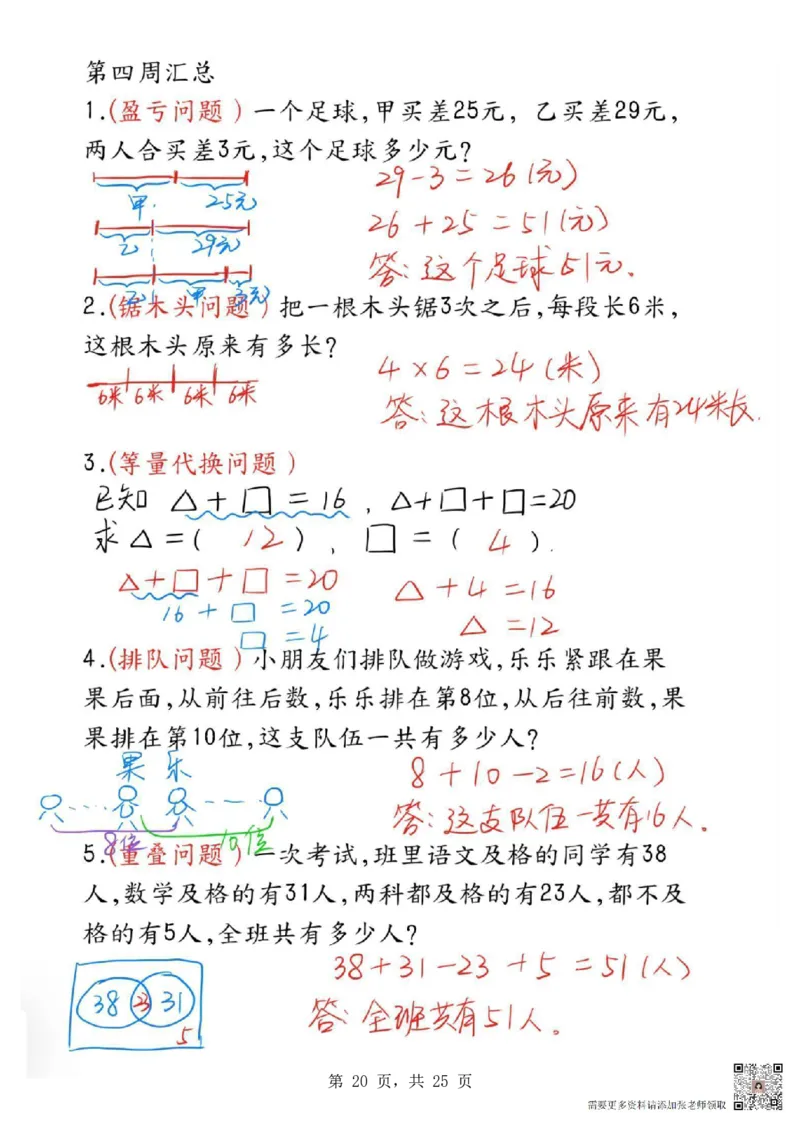 第四周汇总
1.(盈亏问题)一个足球,甲买差25元，乙买差29元，
两人合买差3元,这个足球多少元?
甲. 25元
乙 29元
乙 甲 3元
29-3=26(元)
26+25=51(元)
答:这个足球51元.
2.(锯木头问题)把一根木头锯3次之后,每段长6米，
这根木头原来有多长?
6米 6米 6米 6米
4×6=24(米)
答:这根木头原来有24米长.
3.(等量代换问题)
已知 △+□=16 , △+□+□=20
求△=( 12 ), □=( 4 ).
△+□+□=20
16+□=20
□=4
△+4=16
△=12
4.(排队问题)小朋友们排队做游戏,乐乐紧跟在果
果后面,从前往后数,乐乐排在第8位,从后往前数,果
果排在第10位,这支队伍一共有多少人?
果 乐
8位 10位
8+10-2=16(人)
答:这支队伍一共有16人.
5.(重叠问题)一次考试,班里语文及格的同学有38
人,数学及格的有31人,两科都及格的有23人,都不及
格的有5人,全班共有多少人?
38 23 31
5
38+31-23+5=51(人)
答:全班共有51人。
第 20 页，共 25 页
需要更多资料请添加张老师领取